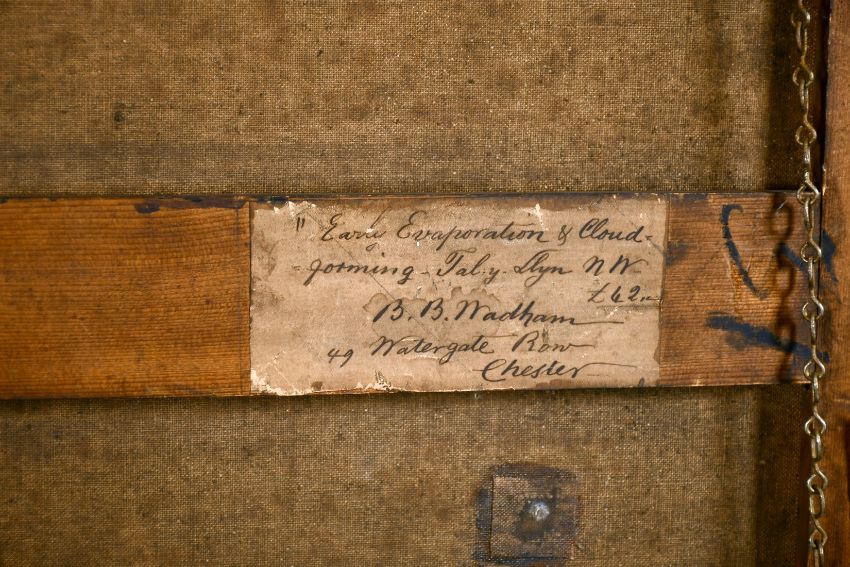 " Early Evaporation & Cloud-
- forming - Tal-y-Llyn N W
£42..
B. B. Wadham
49 Watergate Row
Chester